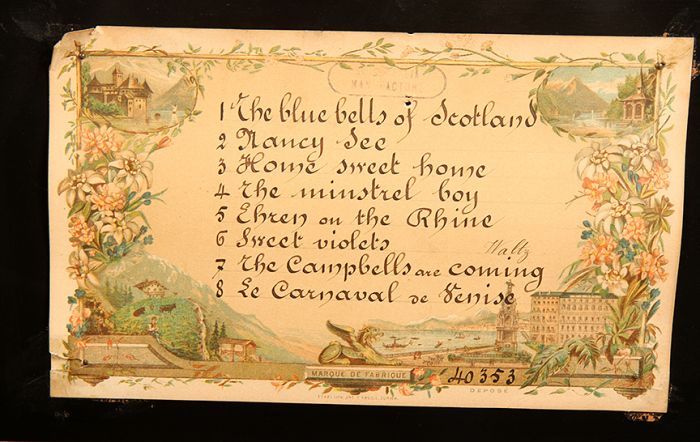 MANUFACTURE
1 The blue bells of Scotland
2 Nancy See
3 Home sweet home
4 The minstrel boy
5 Ehren on the Rhine
6 Sweet violets Waltz
7 The Campbells are coming
8 Le Carnaval de Venise
MARQUE DE FABRIQUE
40353
DEPOSÉ